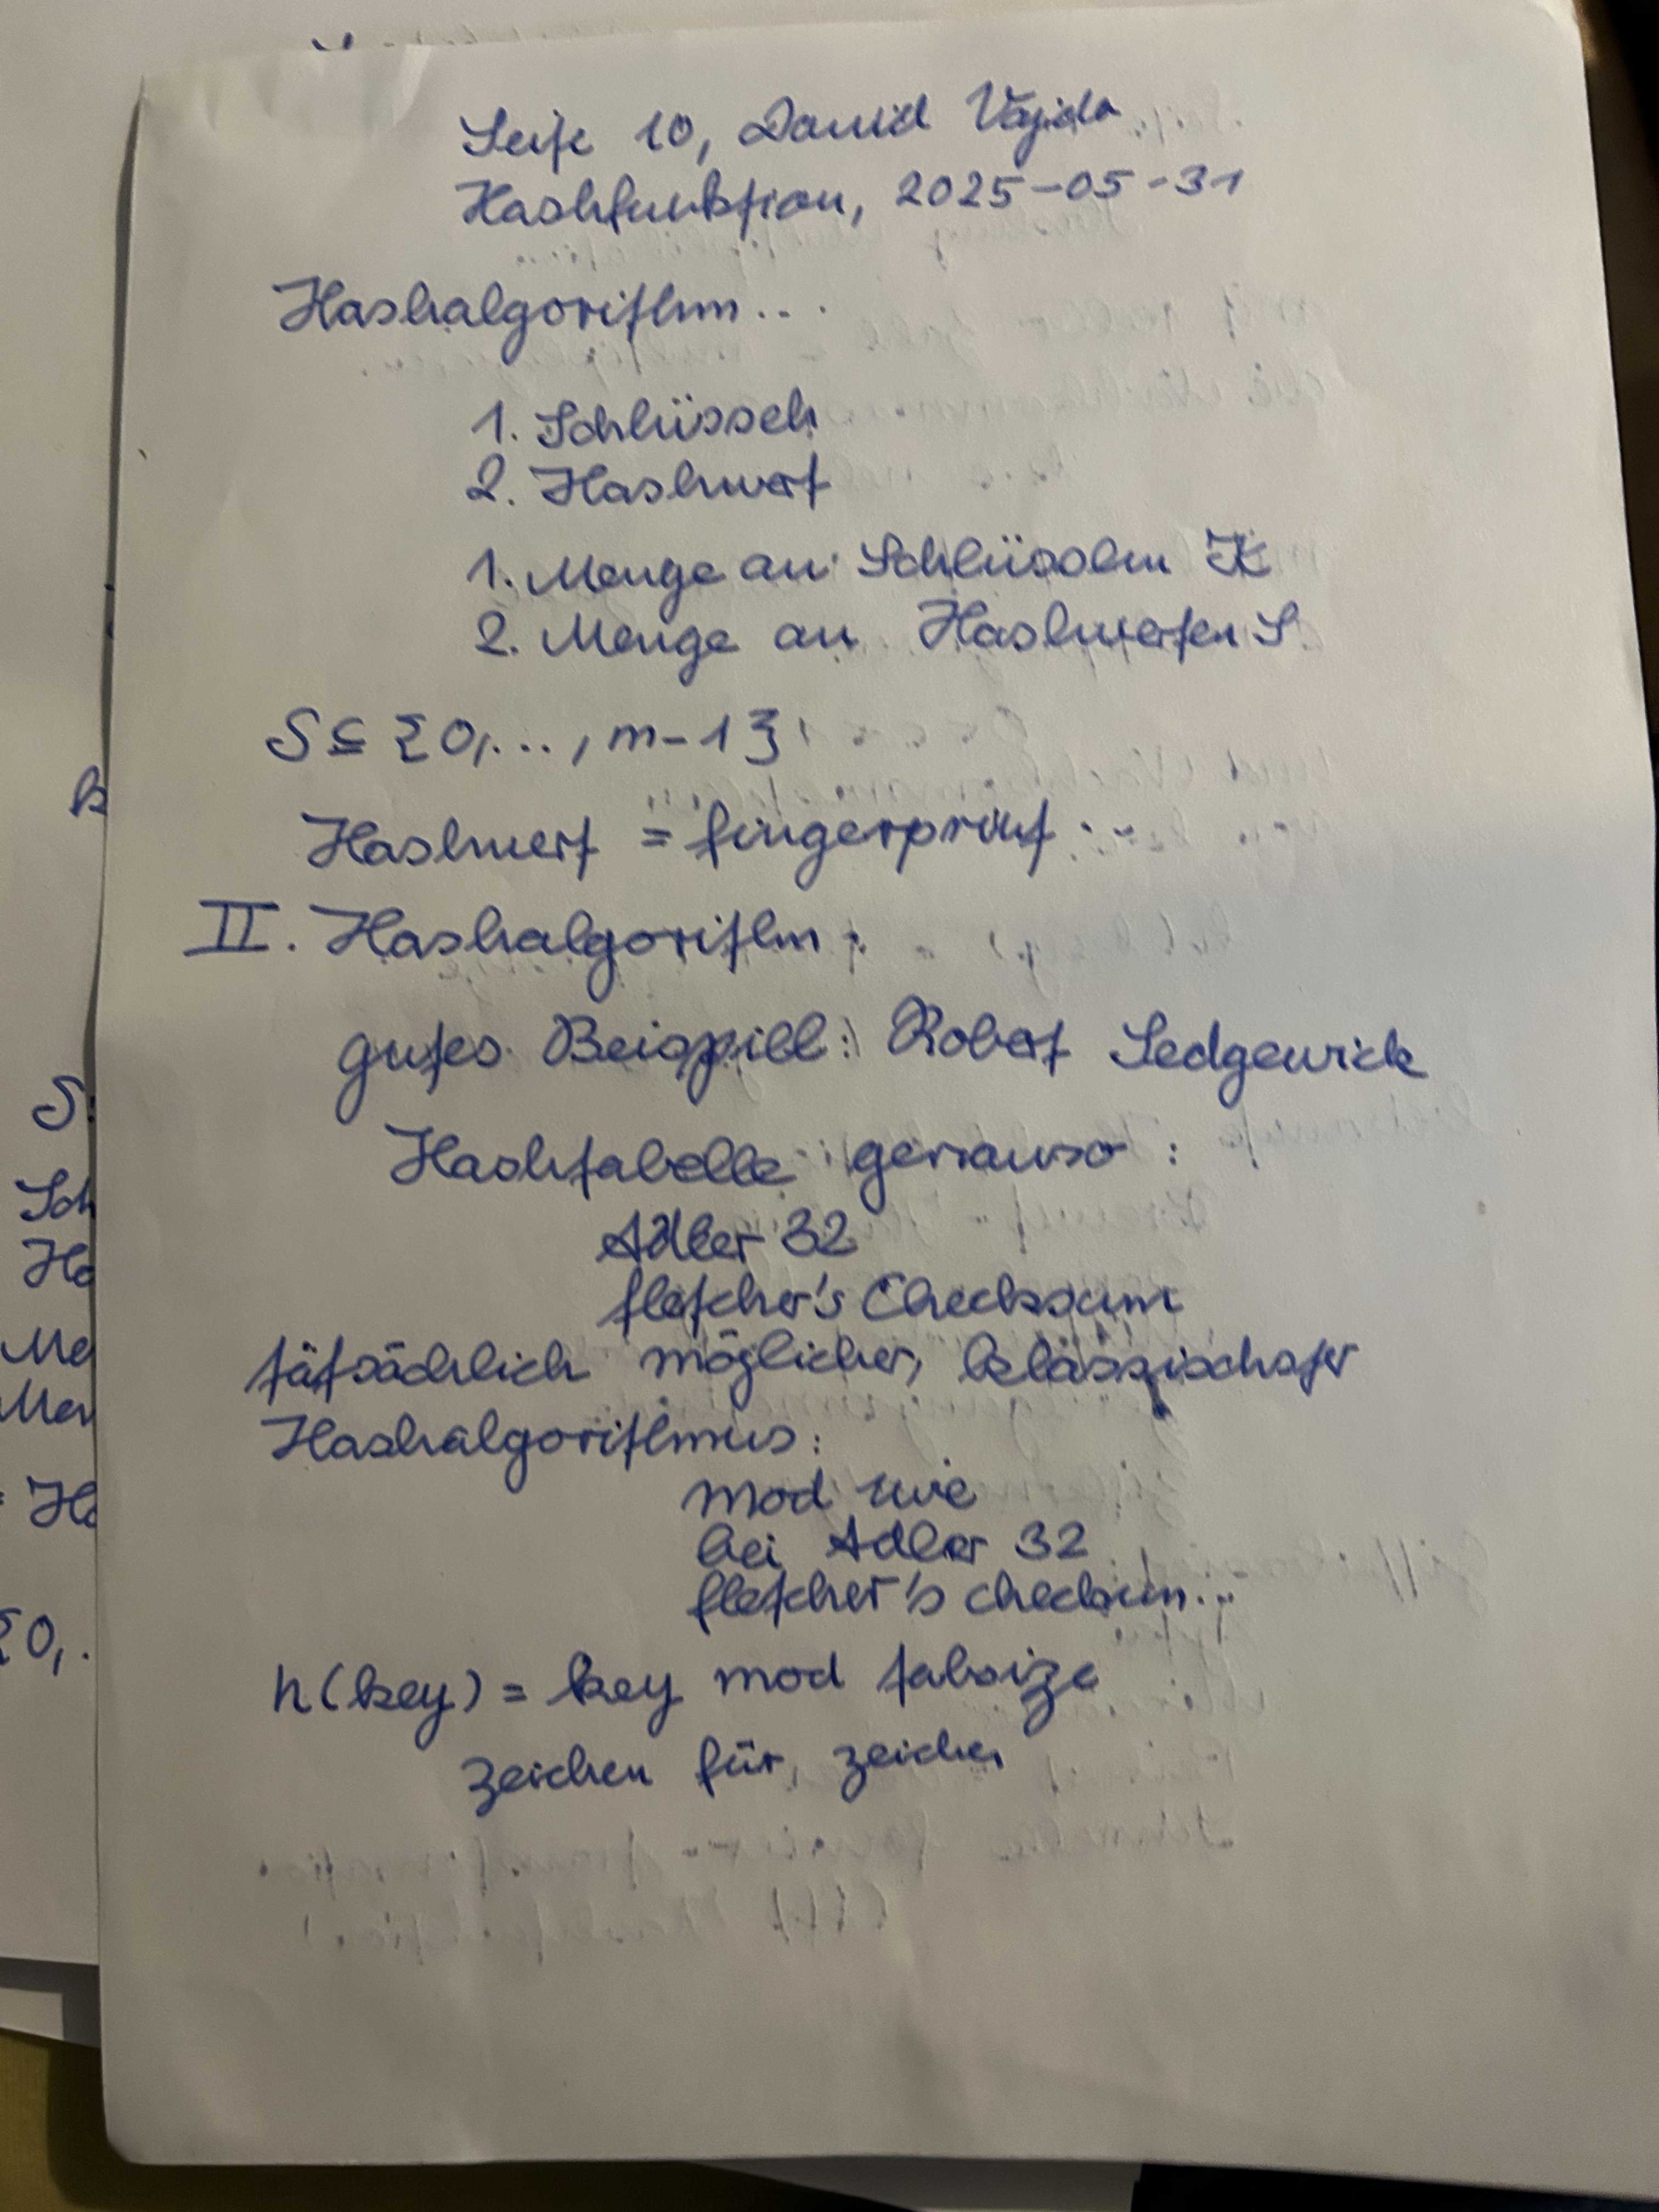 Seite 10, David Vajda
Hashfunktion, 2025-05-31
Hashalgorithm...
1. Schlüssel
2. Hashwert
1. Menge an Schlüsseln K
2. Menge an Hashwerten S
S ⊆ {0,..., m-1}
Hashwert = fingerprint...
II. Hashalgorithm:
gutes Beispiell: Robert Sedgewick
Hashtabelle genauso:
Adler 32
fletcher's Checksum
tätsächlich möglicher, klässischster
Hashalgorithmus:
mod wie
bei Adler 32
fletcher's checksum...
h(key) = key mod tabsize
zeichen für zeichen